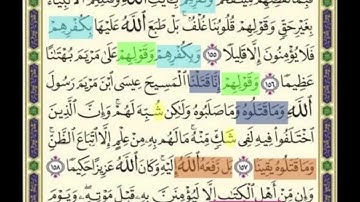 بِغَيْرِ حَقٍّ وَقَوْلِهِمْ قُلُوبُنَا غُلْفٌ بَلْ طَبَعَ اللَّهُ عَلَيْهَا بِكُفْرِهِمْ
فَلَا يُؤْمِنُونَ إِلَّا قَلِيلًا ١٥٥ وَبِكُفْرِهِمْ وَقَوْلِهِمْ عَلَىٰ مَرْيَمَ بُهْتَانًا
عَظِيمًا ١٥٦ وَقَوْلِهِمْ إِنَّا قَتَلْنَا الْمَسِيحَ عِيسَى ابْنَ مَرْيَمَ رَسُولَ
اللَّهِ وَمَا قَتَلُوهُ وَمَا صَلَبُوهُ وَلَٰكِن شُبِّهَ لَهُمْ وَإِنَّ الَّذِينَ
اخْتَلَفُوا فِيهِ لَفِي شَكٍّ مِّنْهُ مَا لَهُم بِهِ مِنْ عِلْمٍ إِلَّا اتِّبَاعَ الظَّنِّ
وَمَا قَتَلُوهُ يَقِينًا ١٥٧ بَل رَّفَعَهُ اللَّهُ إِلَيْهِ وَكَانَ اللَّهُ عَزِيزًا حَكِيمًا ١٥٨
وَإِن مِّنْ أَهْلِ الْكِتَابِ إِلَّا لَيُؤْمِنَنَّ بِهِ قَبْلَ مَوْتِهِ وَيَوْمَ